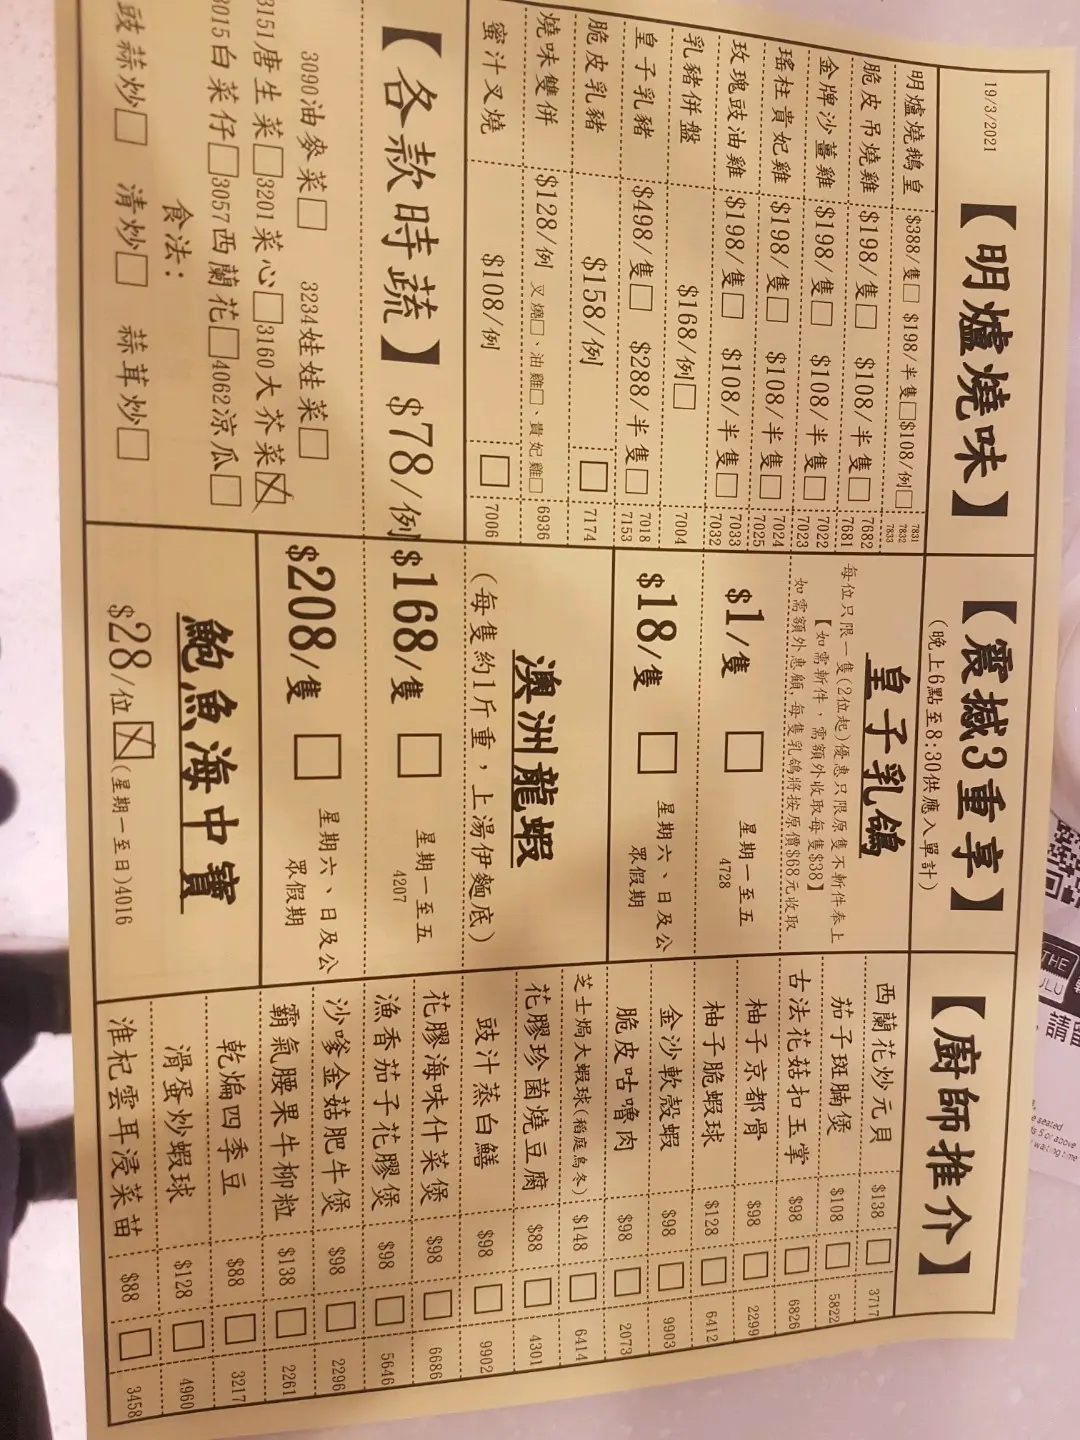 19/3/2021
【明爐燒味】
明爐燒鵝皇 $388/隻□ $198/半隻□$108/例□ 7831 7832 7833
脆皮吊燒雞 $198/隻□ $108/半隻□ 7682 7681
金牌沙薑雞 $198/隻□ $108/半隻□ 7022 7023
瑤柱貴妃雞 $198/隻□ $108/半隻□ 7024 7025
玫瑰豉油雞 $198/隻□ $108/半隻□ 7033 7032
乳豬併盤 $168/例□ 7004
皇子乳豬 $498/隻□ $288/半隻□ 7018 7153
脆皮乳豬 $158/例 □ 7174
燒味雙併 $128/例 叉燒□、油雞□、貴妃雞□ 6936
蜜汁叉燒 $108/例 □ 7006
【各款時蔬】$78/例
3090油麥菜□ 3234娃娃菜□
3151唐生菜□3201菜心□3160大芥菜☒
3015白菜仔□3057西蘭花□4062涼瓜□
食法：
豉蒜炒□ 清炒□ 蒜茸炒□
【震撼3重享】
(晚上6點至8:30供應入單計)
皇子乳鴿
每位只限一隻(2位起)優惠只限原隻不斬件奉上
【如需斬件，需額外收取每隻$38】
如需額外惠顧,每隻乳鴿將按原價$68元收取
$1/隻 □ 星期一至五 4728
$18/隻 □ 星期六、日及公眾假期
澳洲龍蝦
(每隻約1斤重，上湯伊麵底)
$168/隻 □ 星期一至五 4207
$208/隻 □ 星期六、日及公眾假期
鮑魚海中寶
$28/位☒(星期一至日)4016
【廚師推介】
西蘭花炒元貝 $138 □ 3717
茄子斑腩煲 $108 □ 5822
古法花菇扣玉掌 $98 □ 6826
柚子京都骨 $98 □ 2299
柚子脆蝦球 $128 □ 6412
金沙軟殼蝦 $98 □ 9903
脆皮咕嚕肉 $98 □ 2073
芝士焗大蝦球(稻庭烏冬) $148 □ 6414
花膠珍菌燒豆腐 $88 □ 4301
豉汁蒸白鱔 $98 □ 9902
花膠海味什菜煲 $98 □ 6686
漁香茄子花膠煲 $98 □ 5646
沙嗲金菇肥牛煲 $98 □ 2296
霸氣腰果牛柳粒 $138 □ 2261
乾煸四季豆 $88 □ 3217
滑蛋炒蝦球 $128 □ 4960
淮杞雲耳浸菜苗 $88 □ 3458
THE
請
seated
5 or above
waiting time